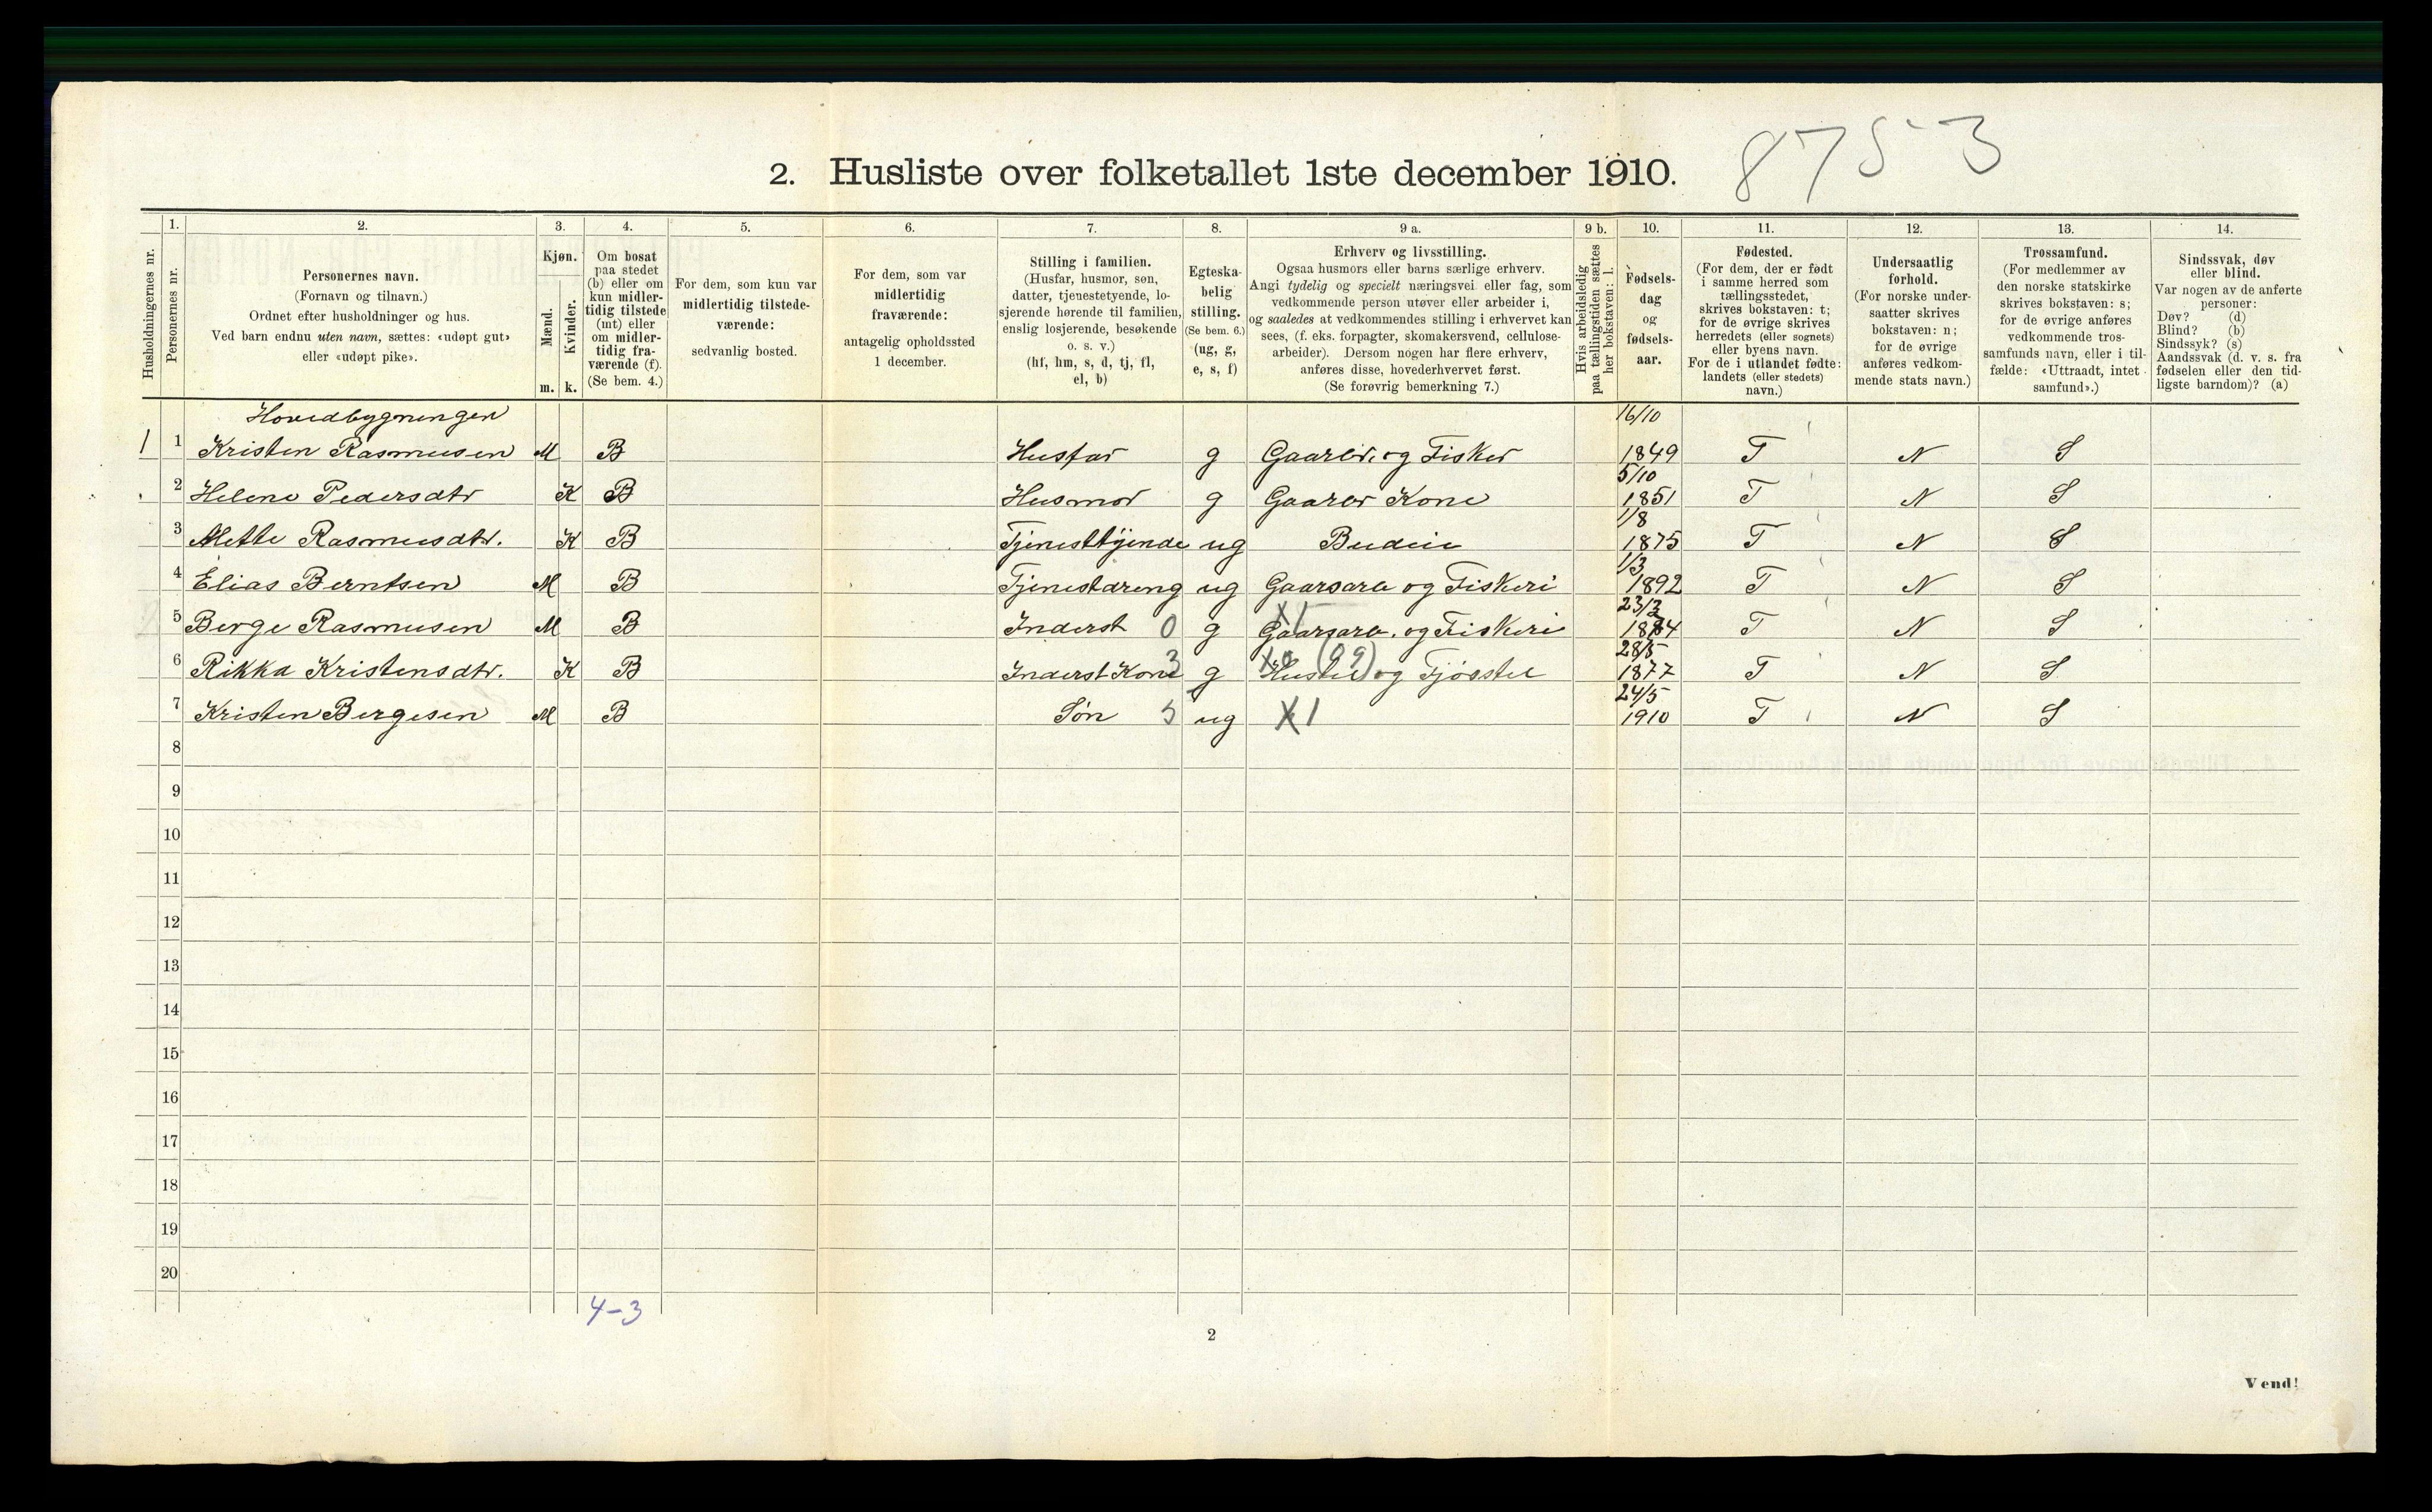 8753
2. Husliste over folketallet 1ste december 1910.
Husholdningernes nr.
1.
Personernes nr.
2.
Personernes navn.
(Fornavn og tilnavn.)
Ordnet efter husholdninger og hus.
Ved barn endnu uten navn, sættes: «udøpt gut»
eller «udøpt pike».
3.
Kjøn.
Mænd.
Kvinder.
m. k.
4.
Om bosat
paa stedet
(b) eller om
kun midler-
tidig tilstede
(mt) eller
om midler-
tidig fra-
værende (f).
(Se bem. 4.)
5.
For dem, som kun var
midlertidig tilstede-
værende:
sedvanlig bosted.
6.
For dem, som var
midlertidig
fraværende:
antagelig opholdssted
1 december.
7.
Stilling i familien.
(Husfar, husmor, søn,
datter, tjenestetyende, lo-
sjerende hørende til familien,
enslig losjerende, besøkende
o. s. v.)
(hf, hm, s, d, tj, fl,
el, b)
8.
Egteska-
belig
stilling.
(Se bem. 6.)
(ug, g,
e, s, f)
9 a.
Erhverv og livsstilling.
Ogsaa husmors eller barns særlige erhverv.
Angi tydelig og specielt næringsvei eller fag, som
vedkommende person utøver eller arbeider i,
og saaledes at vedkommendes stilling i erhvervet kan
sees, (f. eks. forpagter, skomakersvend, cellulose-
arbeider). Dersom nogen har flere erhverv,
anføres disse, hovederhvervet først.
(Se forøvrig bemerkning 7.)
9 b.
Hvis arbeidsledig
paa tællingstiden sættes
her bokstaven: l.
10.
Fødsels-
dag
og
fødsels-
aar.
11.
Fødested.
(For dem, der er født
i samme herred som
tællingsstedet,
skrives bokstaven: t;
for de øvrige skrives
herredets (eller sognets)
eller byens navn.
For de i utlandet fødte:
landets (eller stedets)
navn.)
12.
Undersaatlig
forhold.
(For norske under-
saatter skrives
bokstaven: n;
for de øvrige
anføres vedkom-
mende stats navn.)
13.
Trossamfund.
(For medlemmer av
den norske statskirke
skrives bokstaven: s;
for de øvrige anføres
vedkommende tros-
samfunds navn, eller i til-
fælde: «Uttraadt, intet
samfund».)
14.
Sindssvak, døv
eller blind.
Var nogen av de anførte
personer:
Døv? (d)
Blind? (b)
Sindssyk? (s)
Aandssvak (d. v. s. fra
fødselen eller den tid-
ligste barndom)? (a)
Hovedbygningen 16/10
1 1 Kristen Rasmusen M B Husfar g Gaarbr. og Fisker 1849 T N S
5/10
2 Helene Pedersdtr K B Husmor g Gaarbr Kone 1851 T N S
1/8
3 Mette Rasmusdtr. K B Tjenesttyende ug Budeie 1875 T N S
1/3
4 Elias Berntsen M B Tjenestdreng ug Gaarsarb og Fiskeri 1892 T N S
X1 23/2
5 Berge Rasmusen M B Inderst 0 g Gaarsarb. og Fiskeri 1884 T N S
X0 (09) 28/5
6 Rikka Kristensdtr. K B Inderst Kone 3 g Hustel og Fjösstel 1877 T N S
24/5
7 Kristen Bergesen M B Søn 5 ug X1 1910 T N S
8
9
10
11
12
13
14
15
16
17
18
19
20
4-3
2
Vend!